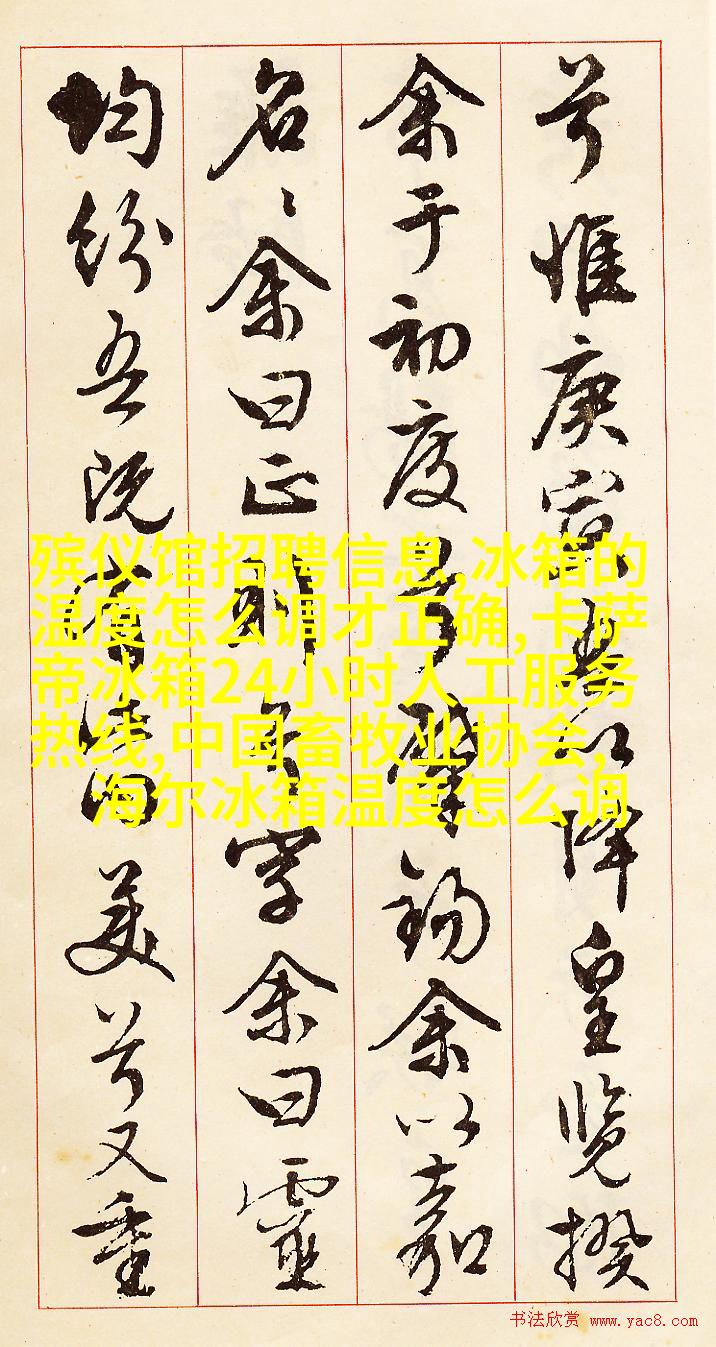 兮惟庚寅吾以降皇覽揆
余于初度兮肇錫余以嘉
名々余曰正則兮字余曰靈
均紛吾既有此内美兮又重
殡仪馆招聘信息,冰箱的
温度怎么调才正确,卡萨
帝冰箱24小时人工服务
热线,中国畜牧业协会,
海尔冰箱温度怎么调
书法欣赏 www.yac8.com